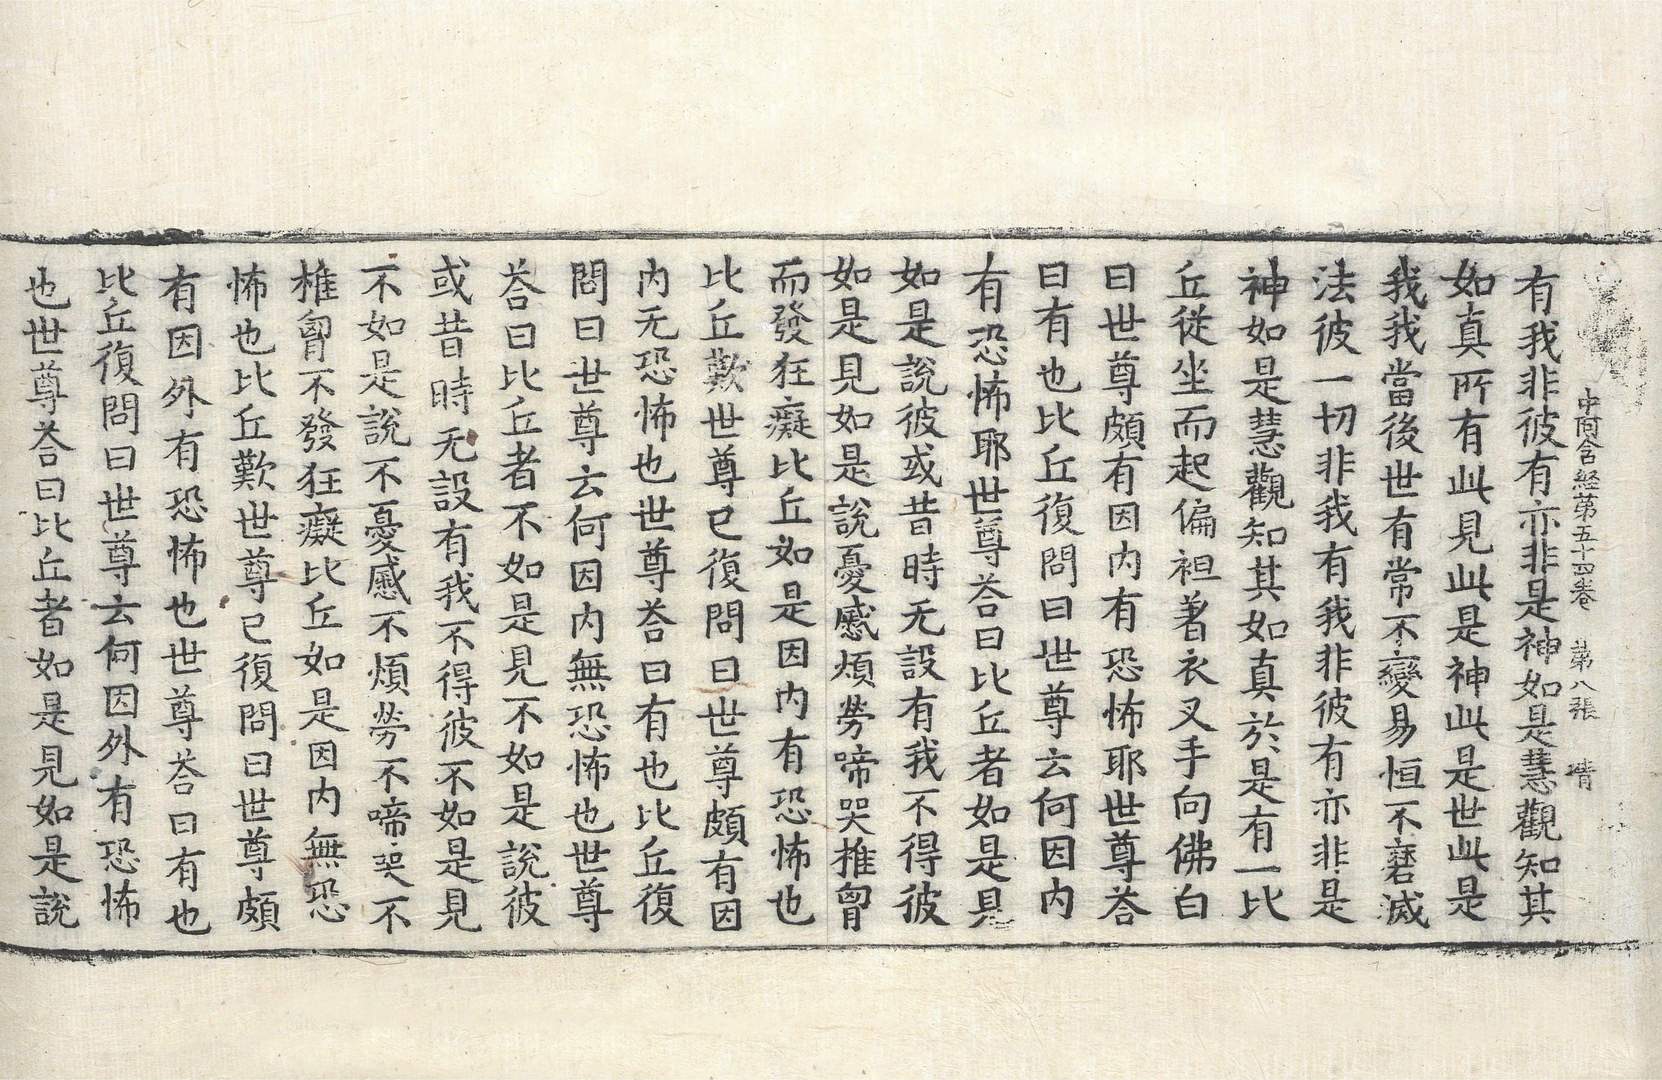 中阿含経第五十四卷　第八張　清
有我非彼有亦非是神如是慧觀知其
如真所有此見此是神此是世此是
我我當後世有常不變易恒不磨滅
法彼一切非我有我非彼有亦非是
神如是慧觀知其如真於是有一比
丘從坐而起偏袒著衣叉手向佛白
曰世尊頗有因内有恐怖耶世尊荅
曰有也比丘復問曰世尊云何因内
有恐怖耶世尊荅曰比丘者如是見
如是說彼或昔時无設有我不得彼
如是見如是說憂慼煩勞啼哭椎胷
而發狂癡比丘如是因内有恐怖也
比丘歎世尊已復問曰世尊頗有因
内无恐怖也世尊荅曰有也比丘復
問曰世尊云何因内無恐怖也世尊
荅曰比丘者不如是見不如是說彼
或昔時无設有我不得彼不如是見
不如是說不憂慼不煩勞不啼哭不
椎胷不發狂癡比丘如是因内無恐
怖也比丘歎世尊已復問曰世尊頗
有因外有恐怖也世尊荅曰有也
比丘復問曰世尊云何因外有恐怖
也世尊荅曰比丘者如是見如是說